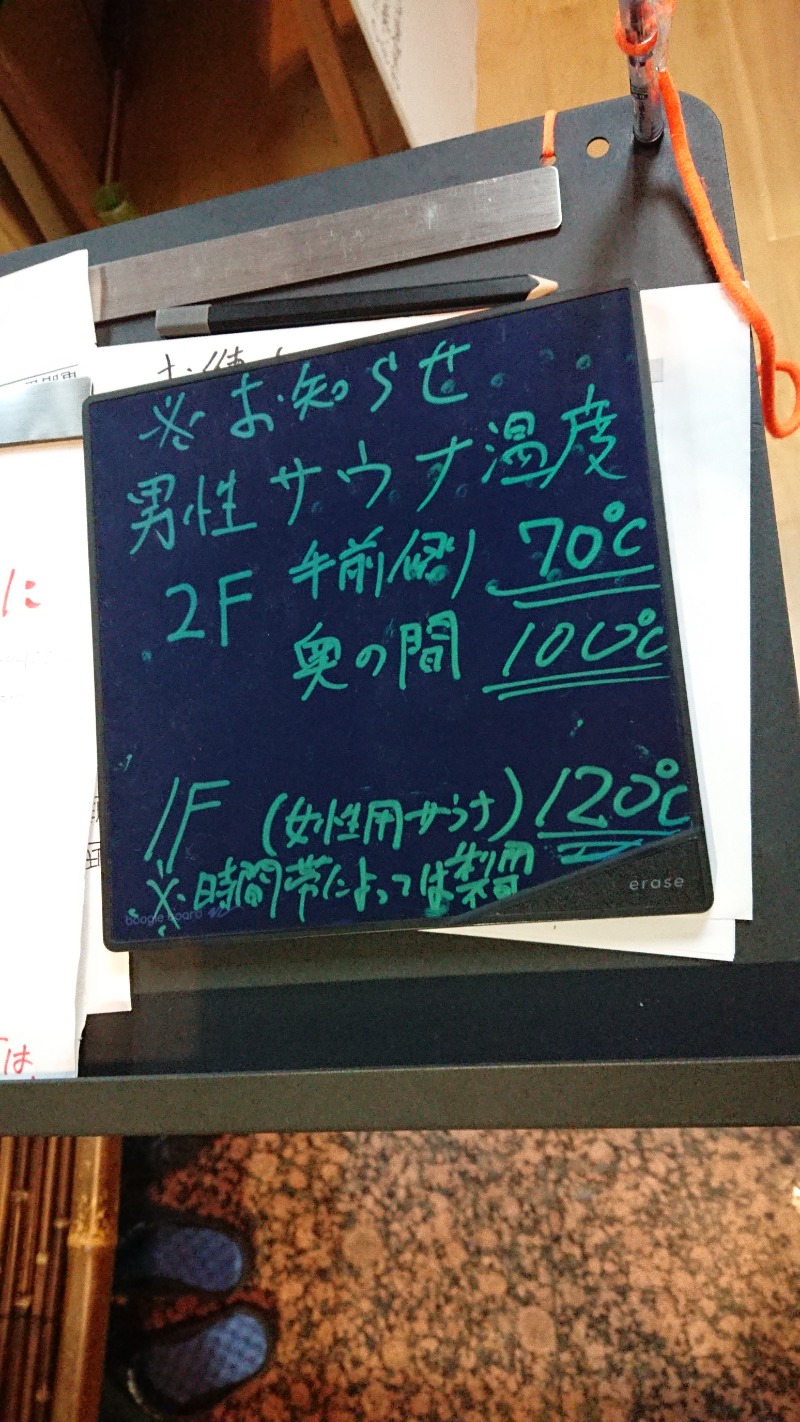 ※ お知らせ
男性サウナ温度
2F 手前側 70℃
奥の間 100℃
1F (女性用サウナ) 120℃
※時間帯によっては禁溜
erase
boogie board
に
は、